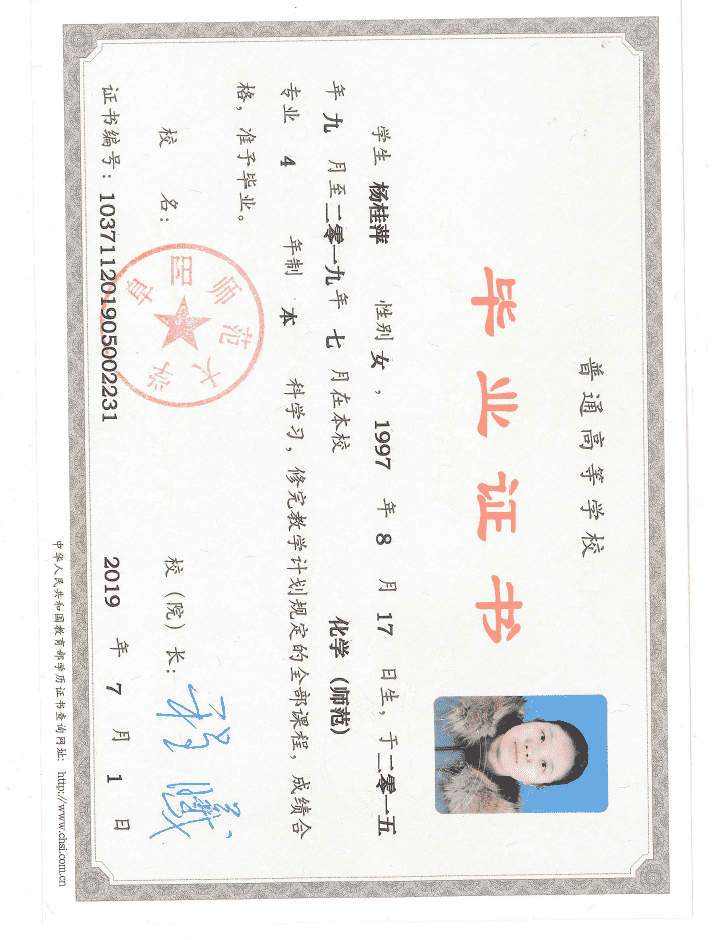 普通高等学校
毕业证书
学生 杨桂萍 性别 女，1997 年 8 月 17 日生，于二零一五
年 九 月至二零一九年 七 月在本校 化学（师范）
专业 4 年制 本 科学习，修完教学计划规定的全部课程，成绩合
格，准予毕业。
校 名：
师范大学
校（院）长：
证书编号：103711201905002231
2019 年 7 月 1 日
中华人民共和国教育部学历证书查询网址：http://www.chsi.com.cn